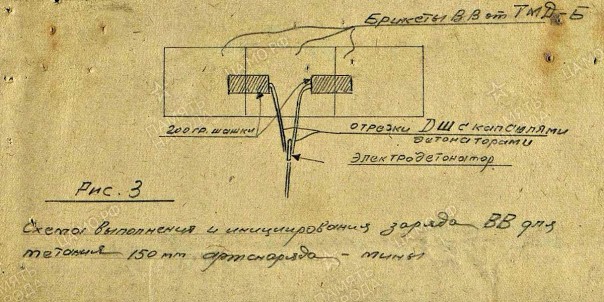 Брикеты ВВ от ТМД-Б
200 гр. шашки
отрезки ДШ с капсюлями
детонаторами
Электродетонатор
Рис. 3
Схема выполнения и инициирования заряда ВВ для
метания 150 мм артснаряда - мины